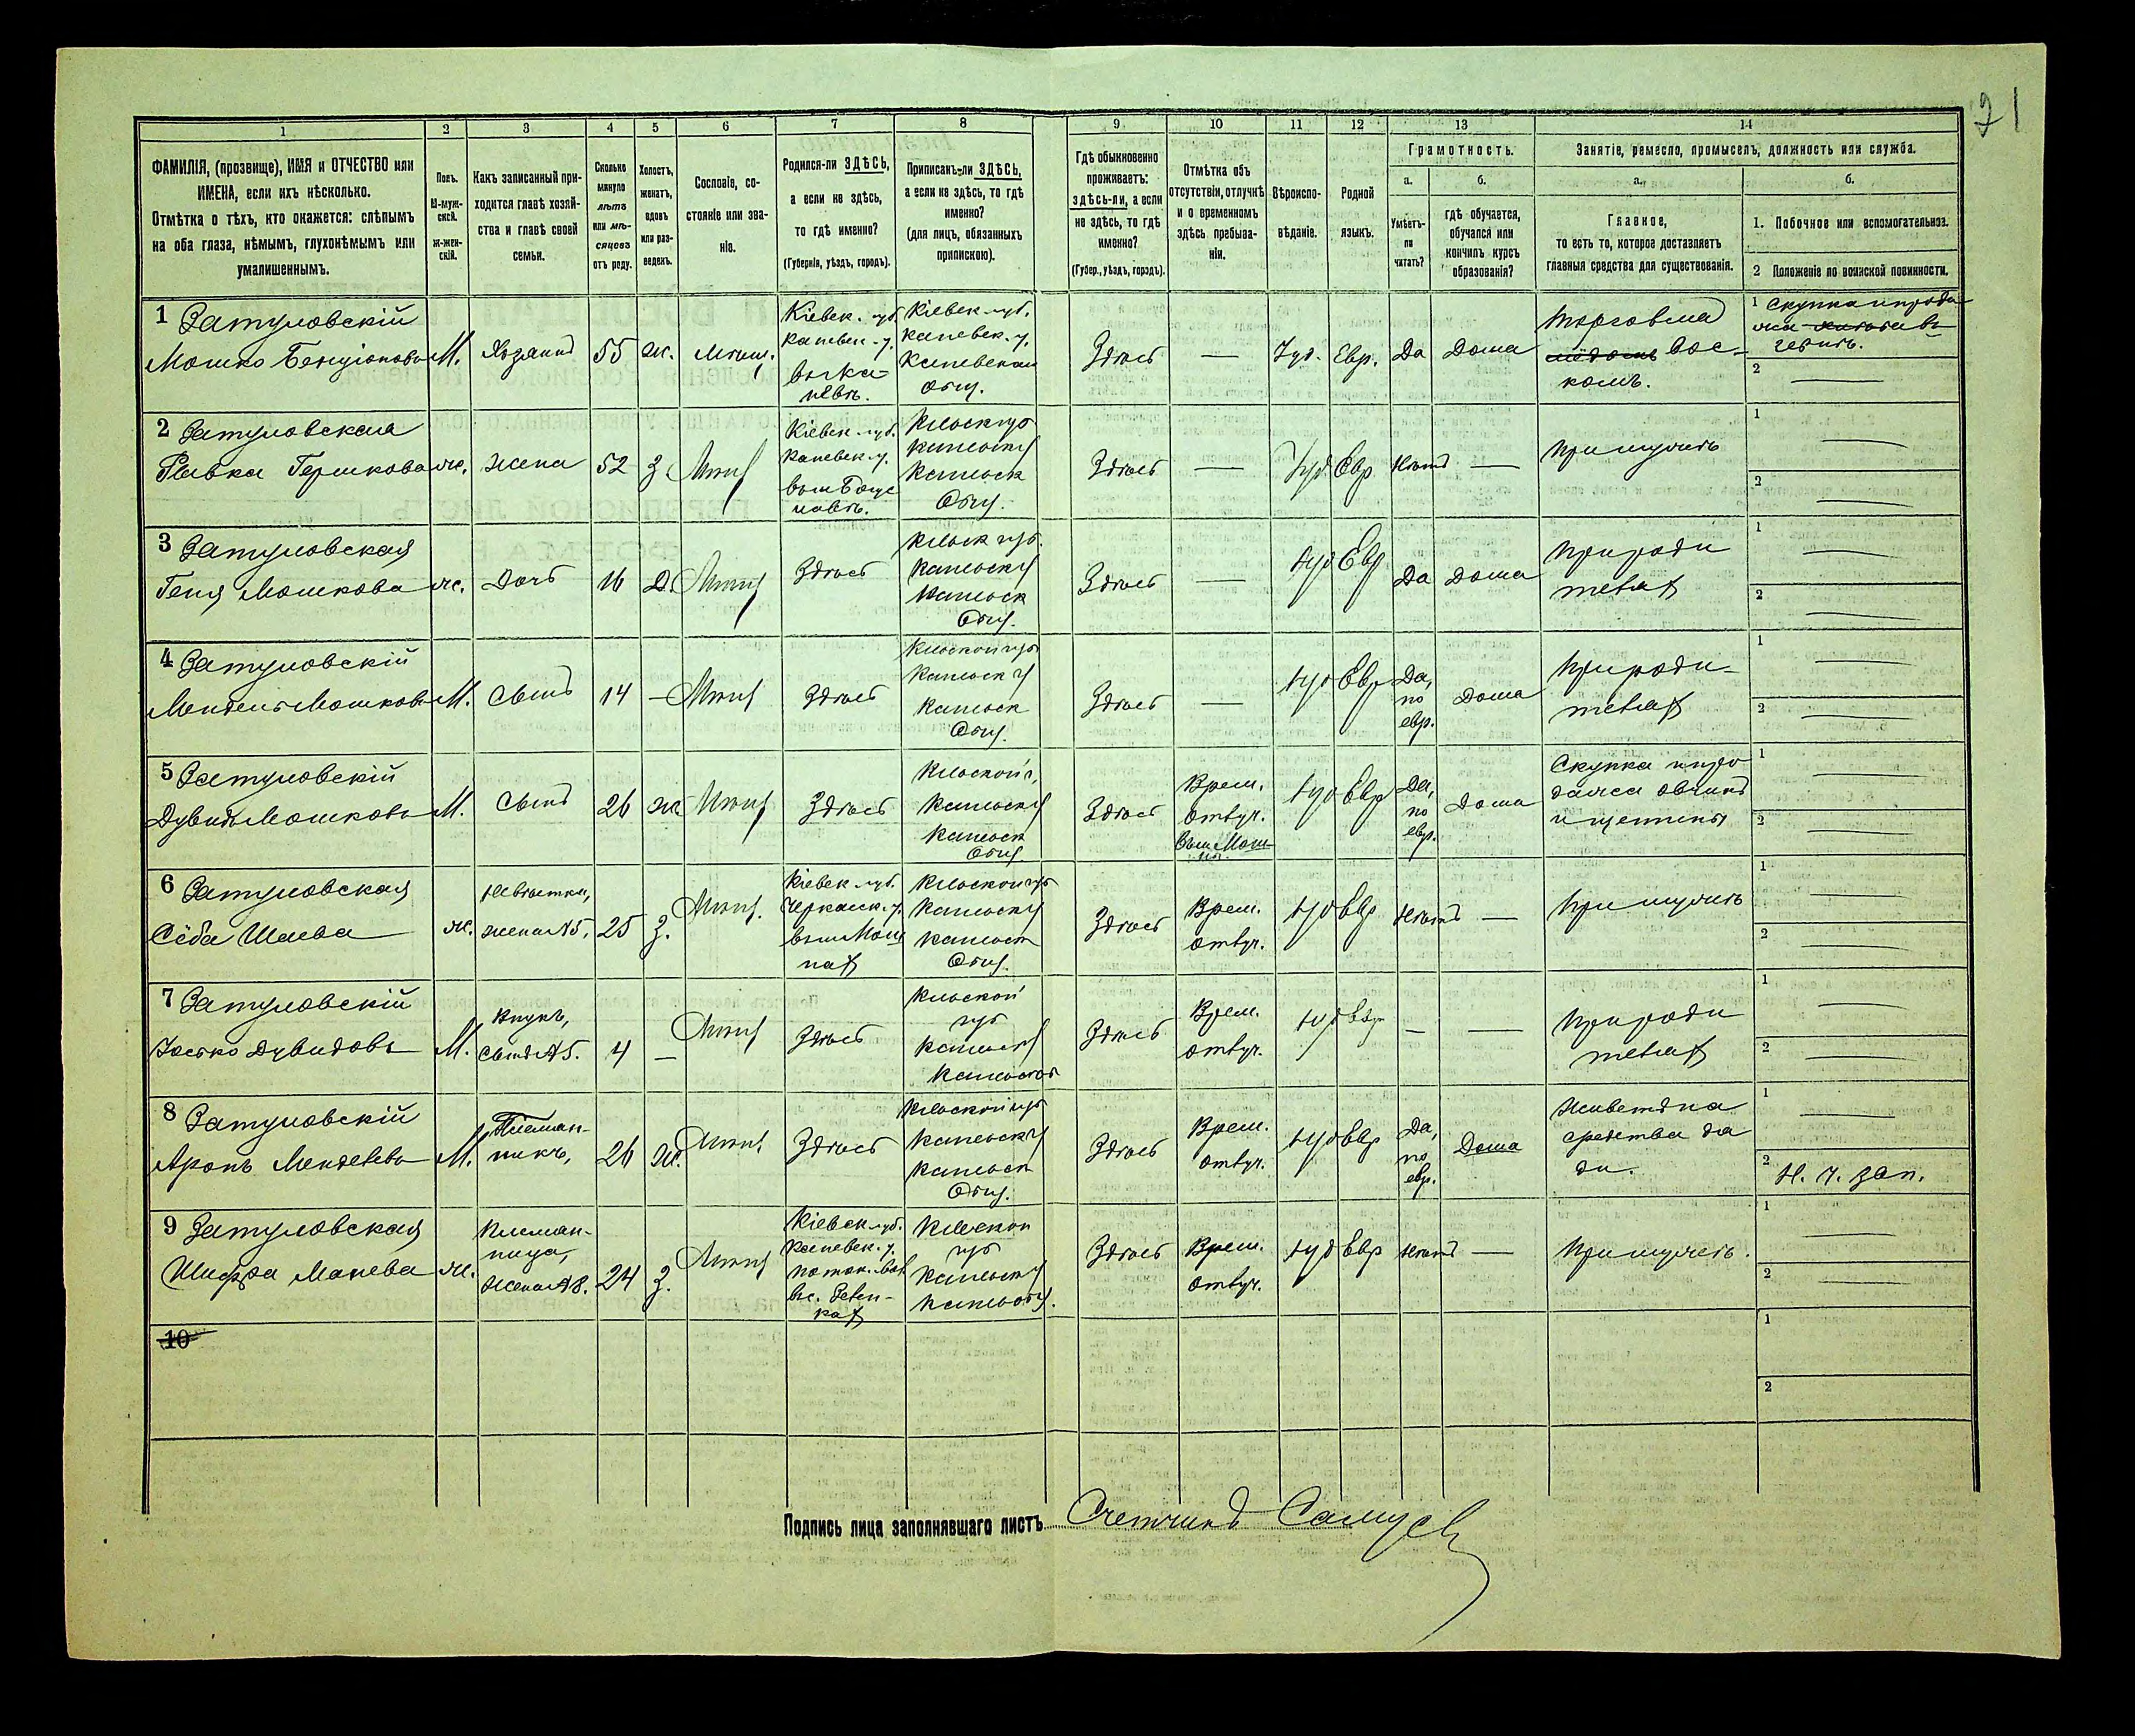 21
1 2 3 4 5 6 7 8 9 10 11 12 13 14
ФАМИЛІЯ, (прозвище), ИМЯ и ОТЧЕСТВО или
ИМЕНА, если ихъ нѣсколько.
Отмѣтка о тѣхъ, кто окажется: слѣпымъ
на оба глаза, нѣмымъ, глухонѣмымъ или
умалишеннымъ.
Полъ.
М-муж-
ской.
ж-жен-
скій.
Какъ записанный при-
ходится главѣ хозяй-
ства и главѣ своей
семьи.
Сколько
минуло
лѣтъ
или мѣ-
сяцевъ
отъ роду.
Холостъ,
женатъ,
вдовъ
или раз-
веденъ.
Сословіе, со-
стояніе или зва-
ніе.
Родился-ли ЗДѢСЬ,
а если не здѣсь,
то гдѣ именно?
(Губернія, уѣздъ, городъ).
Приписанъ-ли ЗДѢСЬ,
а если не здѣсь, то гдѣ
именно?
(для лицъ, обязанныхъ
припискою).
Гдѣ обыкновенно
проживаетъ:
здѣсь-ли, а если
не здѣсь, то гдѣ
именно?
(Губер., уѣздъ, городъ).
Отмѣтка объ
отсутствіи, отлучкѣ
и о временномъ
здѣсь пребыва-
ніи.
Вѣроиспо-
вѣданіе.
Родной
языкъ.
Грамотность.
а.
Умѣетъ-
ли
читать?
б.
гдѣ обучается,
обучался или
кончилъ курсъ
образованія?
Занятіе, ремесло, промыселъ, должность или служба.
а.
Главное,
то есть то, которое доставляетъ
главныя средства для существованія.
б.
1. Побочное или вспомогательное.
2 Положеніе по воинской повинности.
1 Затуловскій
Мошко Бенціоновъ
М.
Хозяинъ
55
ж.
Мѣщ.
Кіевск. губ.
Каневск. у.
въ м. Ка-
невѣ.
Кіевск. губ.
Каневск. у.
Каневское
Общ.
Здѣсь
—
Іуд.
Евр.
Да
Дома
Торговля
вос-
комъ.
1 Скупка и прода
жа
2 —
2 Затуловская
Рывка Гершкова
ж.
жена
52
З
Мѣщ
Кіевск. губ.
Каневск. у.
въ м. Богус
лавѣ.
Кіевск губ
Каневск у
Каневск
Общ.
Здѣсь
—
Іуд
Евр
Нѣтъ
—
При мужѣ
1 —
2 —
3 Затуловская
Геня Мошкова
ж.
Дочь
16
Д.
Мѣщ
Здѣсь
Кіевск губ.
Каневск у
Каневск
Общ.
Здѣсь
—
Іуд
Евр
Да
Дома
При роди
теляхъ
1 —
2 —
4 Затуловскій
Мендель Мошковъ
М.
Сынъ
14
—
Мѣщ
Здѣсь
Кіевской губ
Каневск у
Каневск
Общ.
Здѣсь
—
Іуд
Евр
Да,
по
евр.
Дома
При роди-
теляхъ
1 —
2 —
5 Затуловскій
Дувидъ Мошковъ
М.
Сынъ
26
ж.
Мѣщ
Здѣсь
Кіевской г.
Каневск у
Каневск
Общ.
Здѣсь
Врем.
отлуч.
Іуд
Евр
Да,
по
евр.
Дома
Скупка и про
дажа овчинъ
и щетины
1 —
2 —
6 Затуловская
Сёба Шаева
ж.
Невѣстка,
жена № 5.
25
З.
Мѣщ.
Кіевск. губ.
Черкасск. у.
въ м. Мош
нахъ
Кіевской губ
Каневск у
Каневск
Общ.
Здѣсь
Врем.
отлуч.
Іуд
Евр
Нѣтъ
—
При мужѣ
1 —
2 —
7 Затуловскій
Іосько Дувидовъ
М.
Внукъ,
сынъ № 5.
4
—
Мѣщ
Здѣсь
Кіевской
губ
Каневск у
Здѣсь
Врем.
отлуч.
Іуд
Евр
—
—
При роди
теляхъ
1 —
2 —
8 Затуловскій
Аронъ Менделевъ
М.
Племян-
никъ,
26
ж.
Мѣщ
Здѣсь
Кіевской губ
Каневск у
Каневск
Общ.
Здѣсь
Врем.
отлуч.
Іуд
Евр
Да,
по
евр.
Дома
Живетъ на
средства дя
ди.
1 —
2 Н. ч. зап.
9 Затуловская
Шифра Маневa
ж.
Племян-
ница,
жена № 8.
24
З.
Мѣщ
Кіевск губ.
Каневск. у.
Кіевской
губ
Каневск у
Здѣсь
Врем.
отлуч.
Іуд
Евр
Нѣтъ
—
При мужѣ.
1 —
2 —
10
1
2
Подпись лица заполнявшаго листъ Счетчикъ